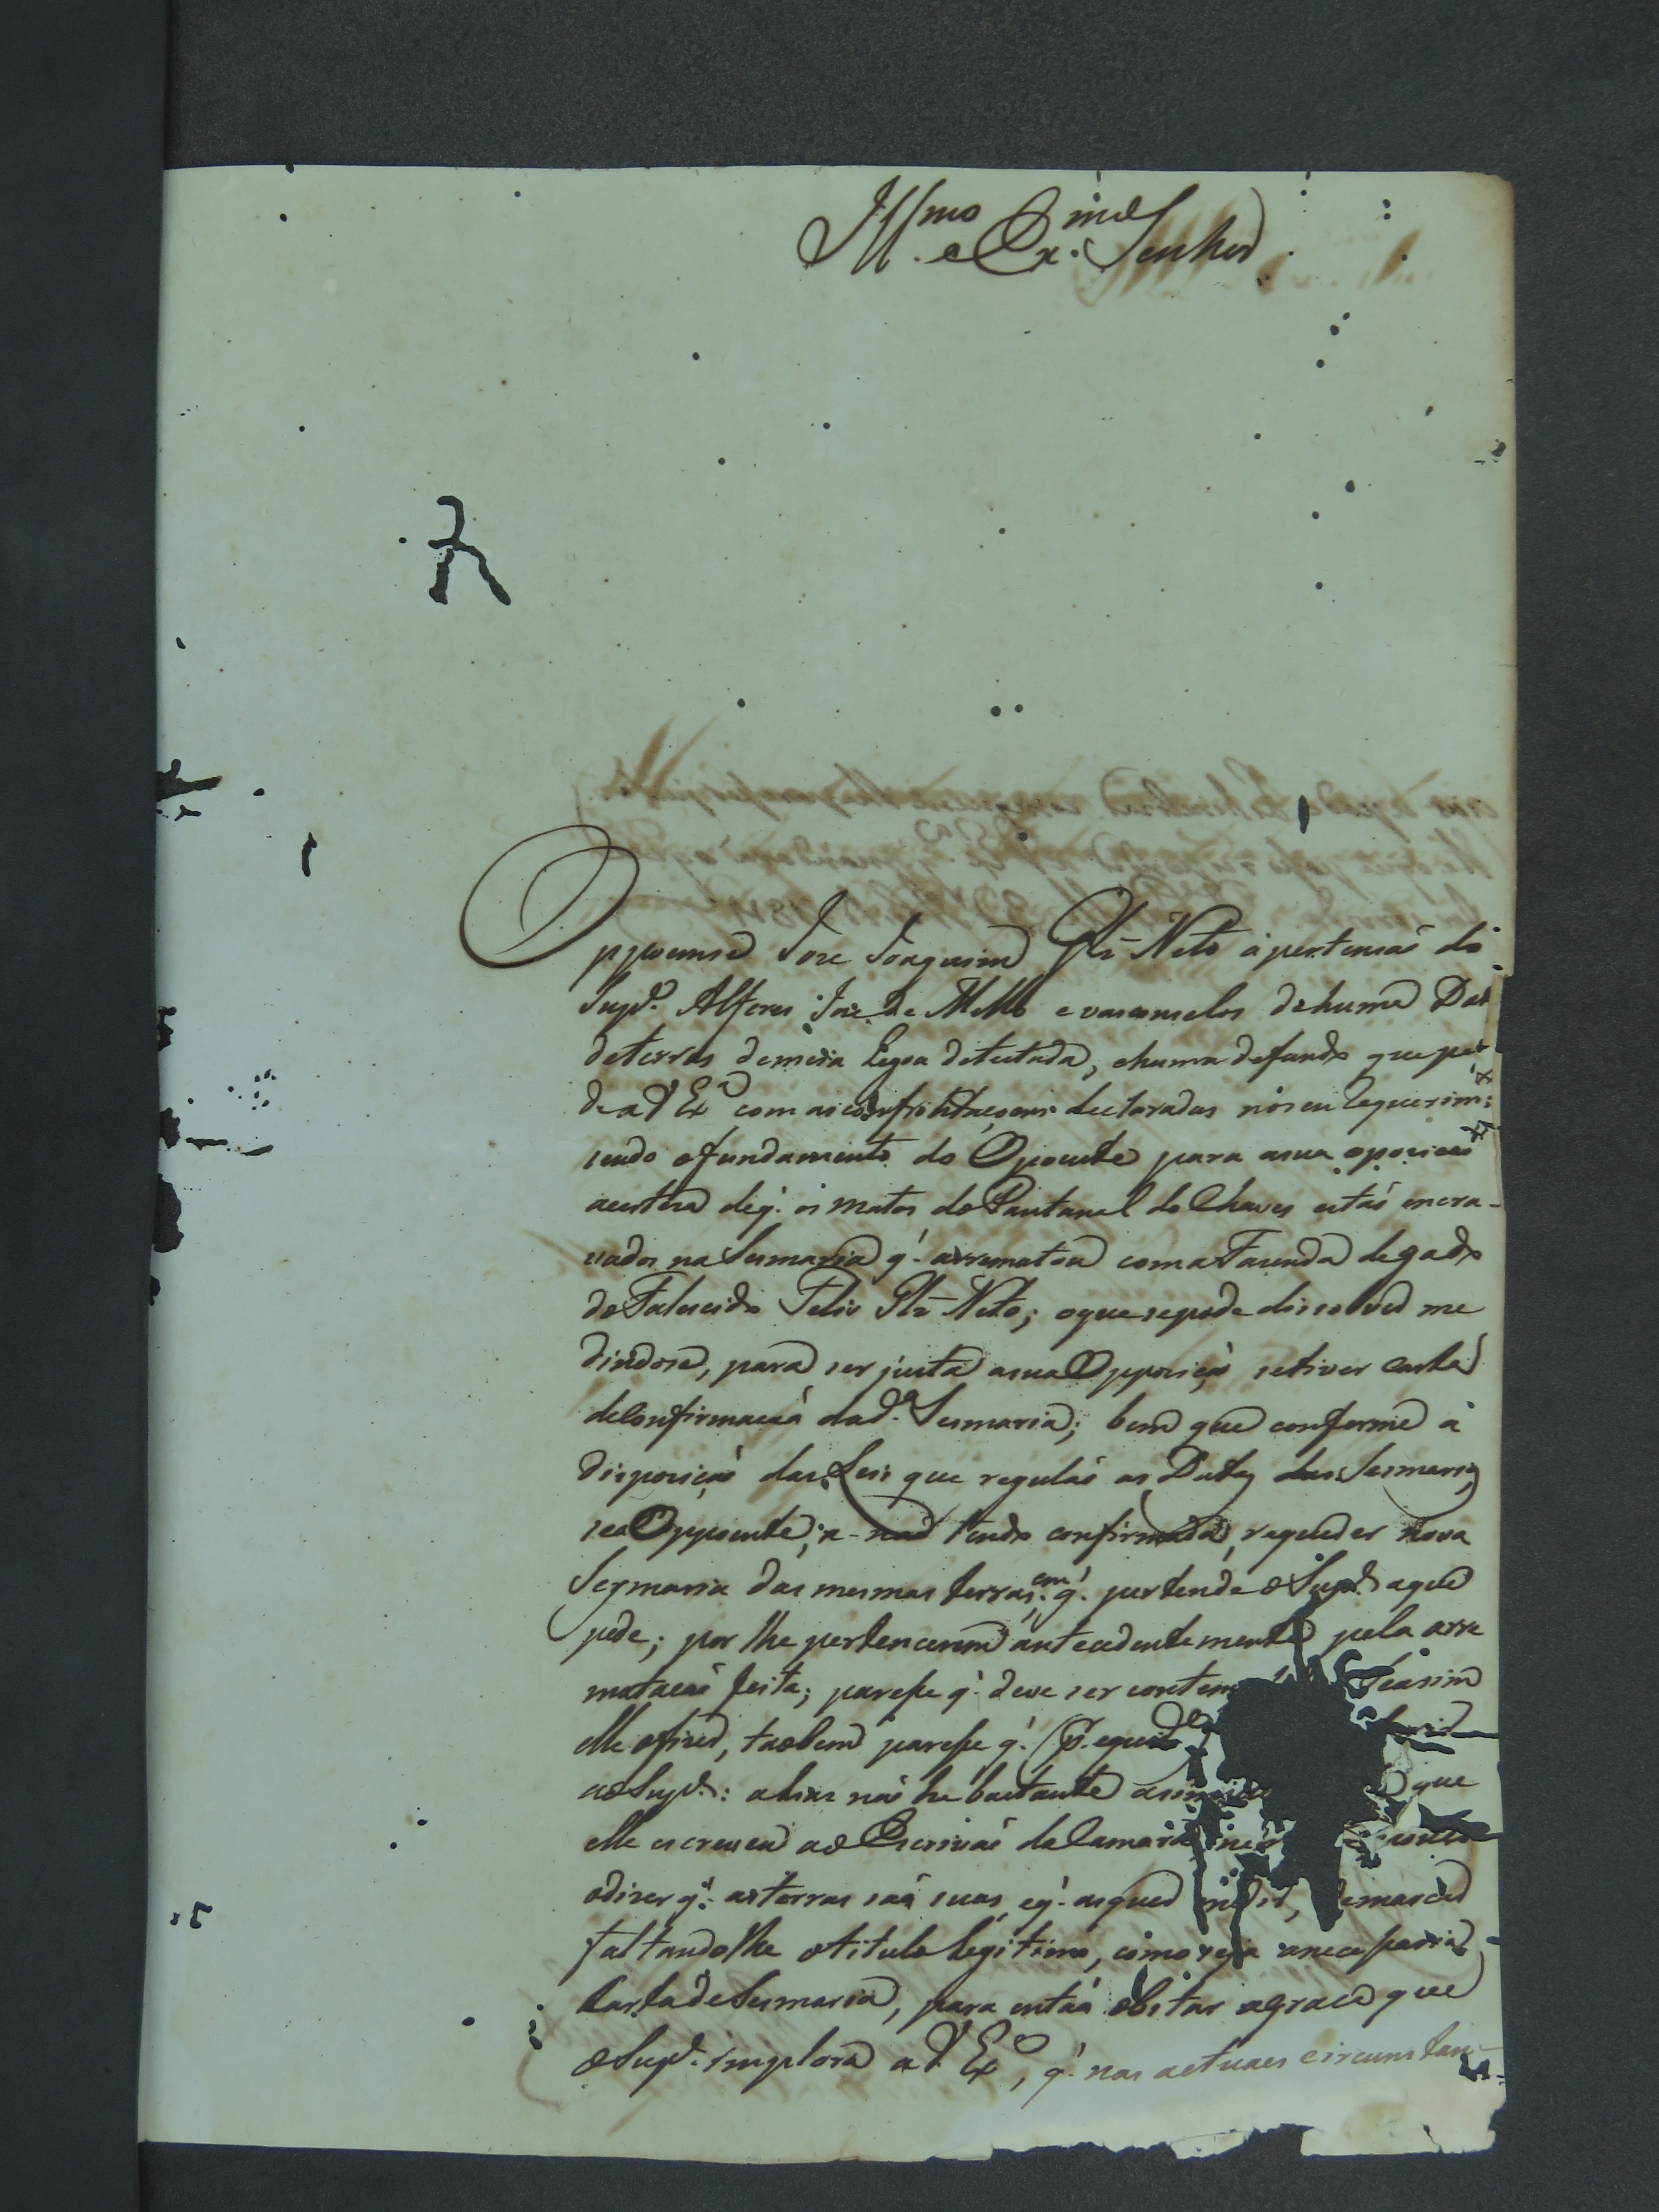 Ill.mo e Ex.mo Senhor
Oppoemse Joze Joaquim Glz Neto á pertensaõ do
Sup.e Alferes Joze de Mello e vasconselos de huma Dat
de terras de meia Legoa de testada, e huma de fundo que pe
de a V Ex.a com as confrontaçoens declaradas no seu Requerim.to
sendo o fundamento do Opoente para a sua opoziçaõ
a certeza de q' os Matos do Pantanal do Chaves estaõ encra-
vados na Sesmaria q' arrematou com a Fazenda de gado
do Falescido Felis Glz Neto; o que se pode dissolver me
dindose, para ser justa a sua Oppoziçaõ se tiver Carta
de Confirmaçaõ da d.a Sesmaria; bem que conforme á
dispoziçaõ das Leis que regulaõ as Datas das Sesmarias
se o Oppoente, a naõ tendo confirmada, requerer nova
Sesmaria das mesmas terras, em q' pertende o Sup.e a que
pede; por lhe pertencerem antecedentemente pela arre
mataçaõ feita; paresse q' deve ser contem e asim
elle o fizer, taobem paresse q' (p.r equid.e
ao Sup.e: alias naõ he bastante que
elle escreveu ao Escrivaõ da Camara
o dizer q' as terras saõ suas, e q' as quer medir, demarcar
faltandolhe o titulo legitimo, como seja a necessaria
Carta de Sesmaria, para entaõ obstar a graça que
o Sup.e implora a V Ex.a, q' nas actuaes circunstan-